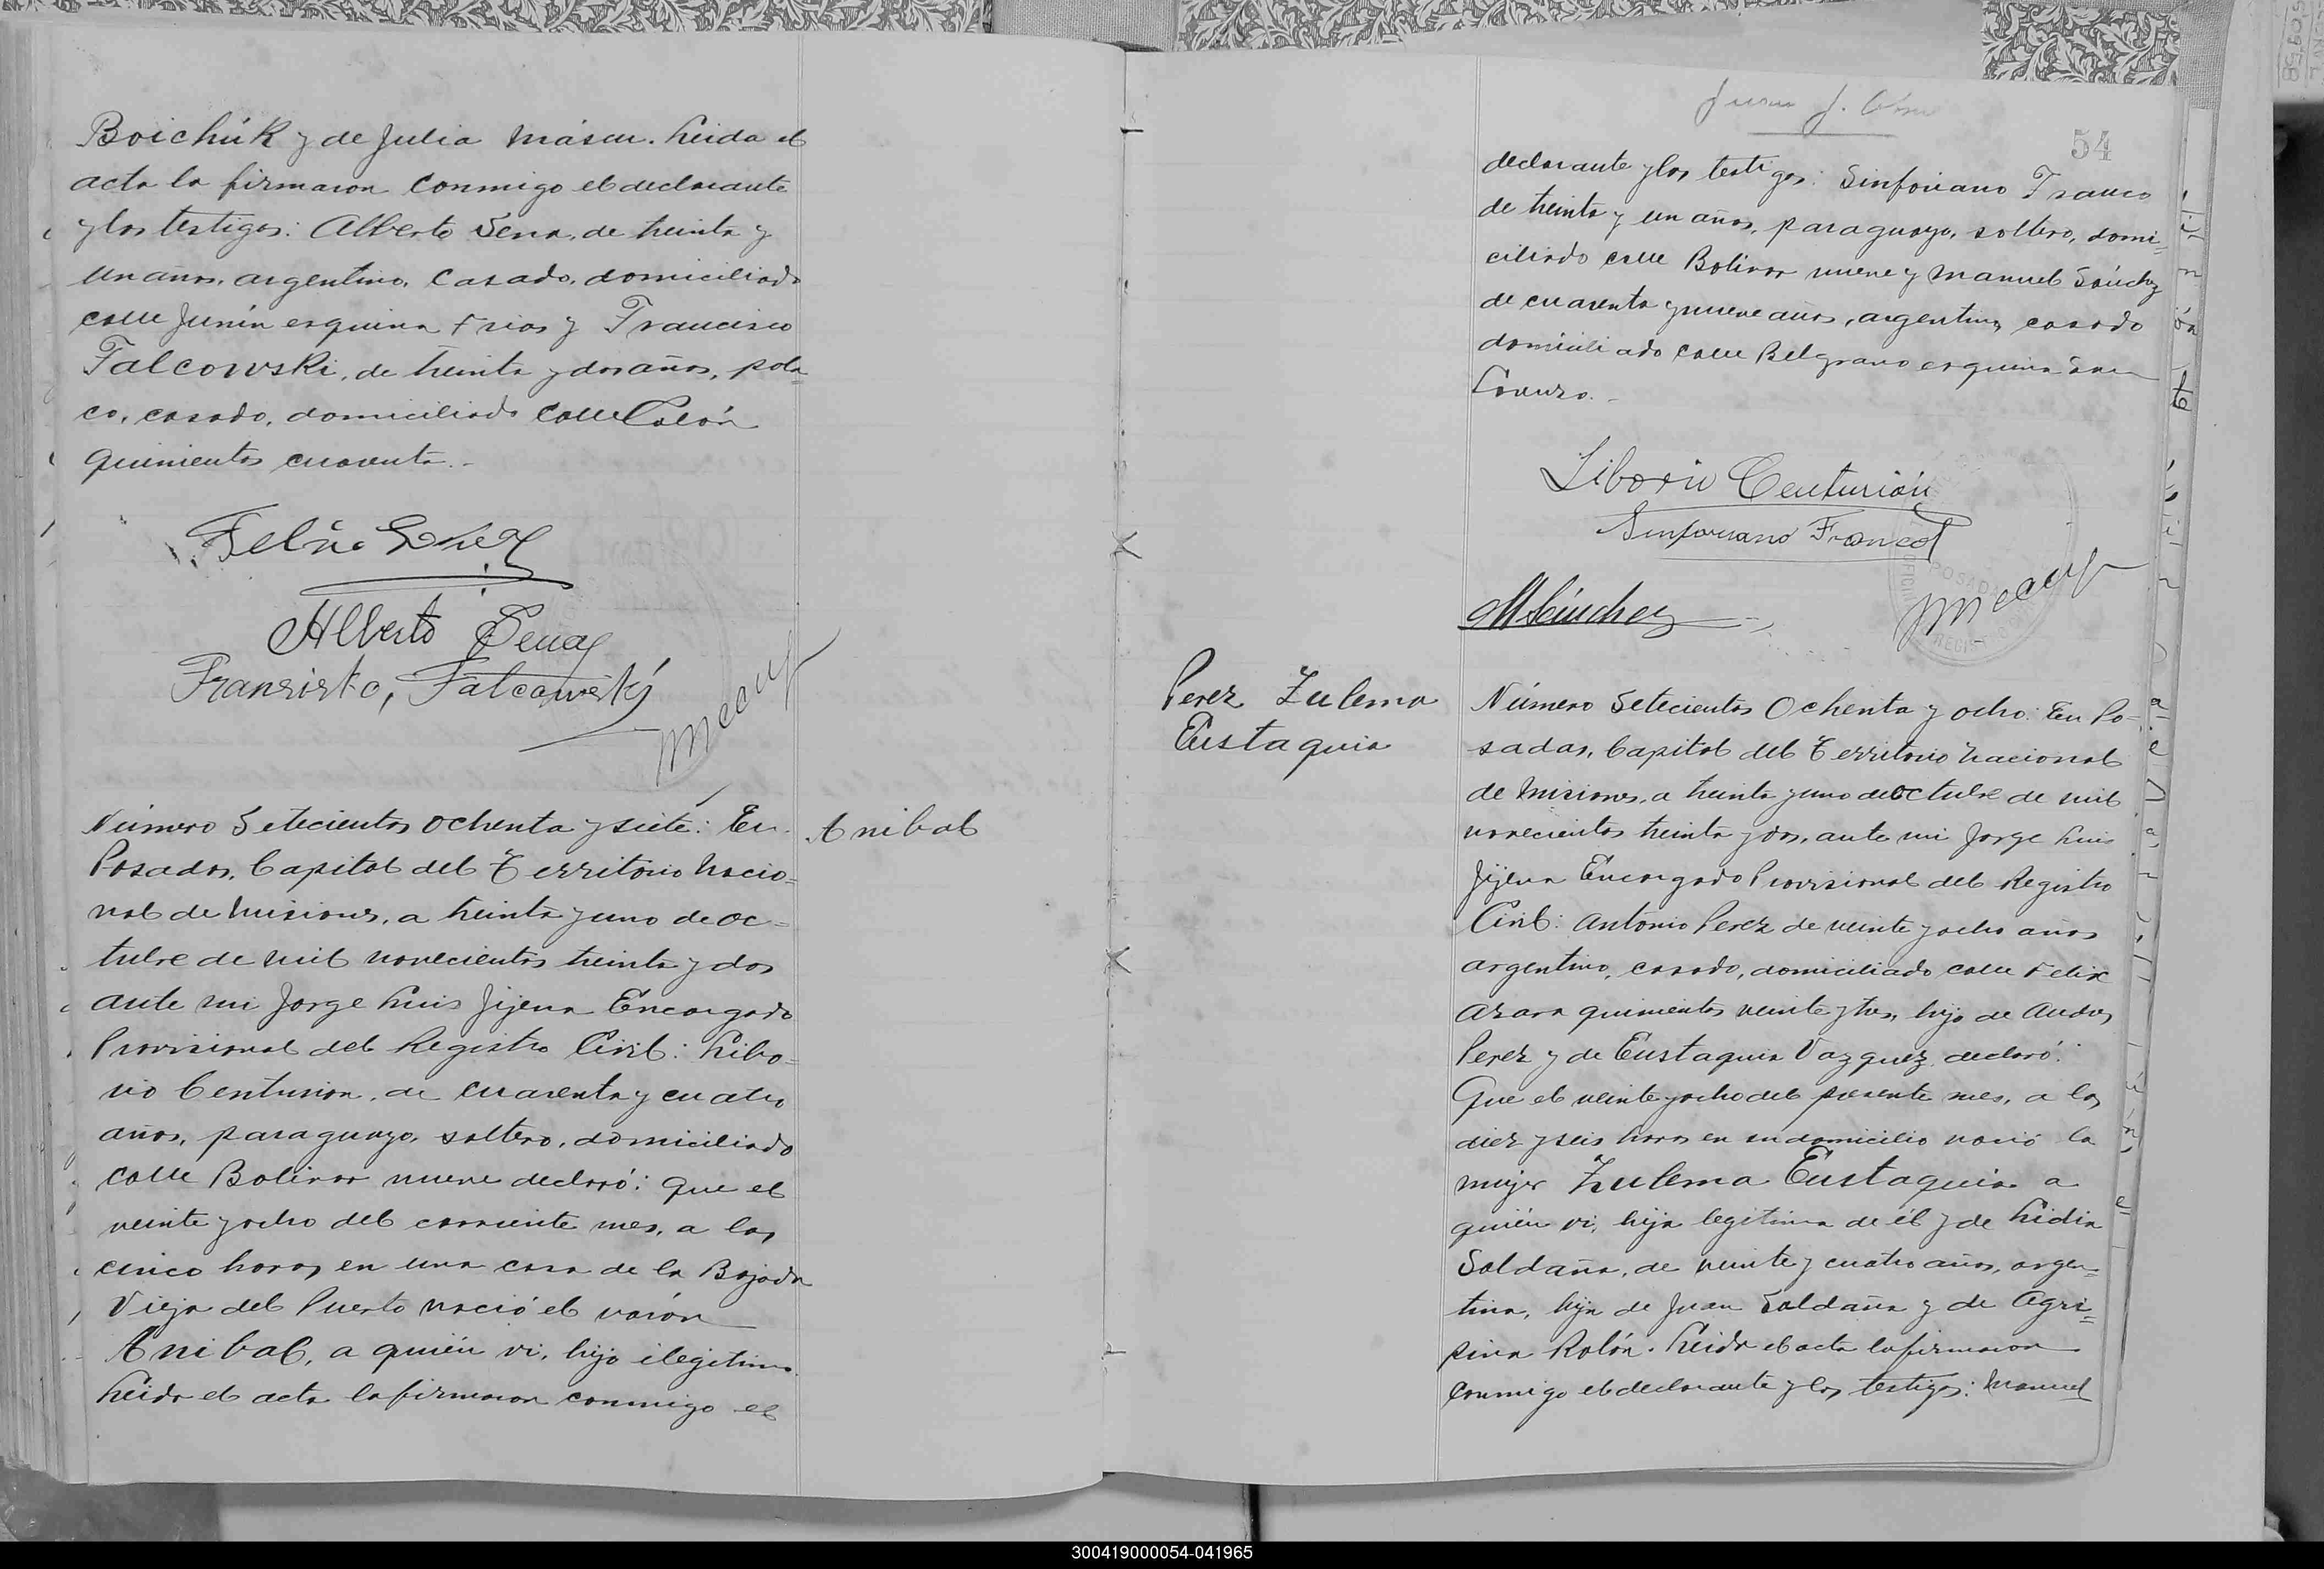 Boichúk y de Julia Másen. Leida el
acta la firmaron conmigo el declarante
y los testigos: Alberto Sena, de treinta y
un años, argentino, casado, domiciliado
calle Junín esquina Frias y Francisco
Falcowski, de treinta y dos años, pola=
co, casado, domiciliado calle Colón
quinientos cuarenta.-
Alberto Sena
Fransisko, Falcowski
Número Setecientos ochenta y siete: En
Posadas, Capital del Territorio Nacio=
nal de Misiones, a treinta y uno de oc=
tubre de mil novecientos treinta y dos
ante mi Jorge Luis Jijena Encargado
Provisional del Registro Civil: Libo=
rio Centurion, de cuarenta y cuatro
años, paraguayo, soltero, domiciliado
calle Bolivar nueve declaró: Que el
veinte y ocho del corriente mes, a las
cinco horas en una casa de la Bajada
Vieja del Puerto nació el varón
Anibal, a quién vi, hijo ilegitimo
Leida el acta la firmaron conmigo el
Anibal
Juan J.
54
declarante y los testigos: Sinforiano Franco
de treinta y un años, paraguayo, soltero, domi=
ciliado calle Bolivar nueve y Manuel Sánchez
de cuarenta y nueve años, argentino, casado
domiciliado calle Belgrano esquina San
Lorenzo.-
Liborio Centurión
Sinforiano Franco
M Sánchez
Perez Zulema
Eustaquia
Número Setecientos Ochenta y ocho: En Po-
sadas, Capital del Territorio Nacional
de Misiones, a treinta y uno de octubre de mil
novecientos treinta y dos, ante mi Jorge Luis
Jijena Encargado Provisional del Registro
Civil: Antonio Perez de veinte y ocho años
argentino, casado, domiciliado calle Felix
Azara quinientos veinte y tres, hijo de Andres
Perez y de Eustaquia Vazquez, declaró:
Que el veinte y ocho del presente mes, a las
diez y seis horas en su domicilio nació la
mujer Zulema Eustaquia a
quién vi, hija legitima de él y de Lidia
Saldaña, de veinte y cuatro años, argen=
tina, hija de Juan Saldaña y de Agri=
pina Rolón. Leida el acta la firmaron
conmigo el declarante y los testigos: Manuel
300419000054-041965